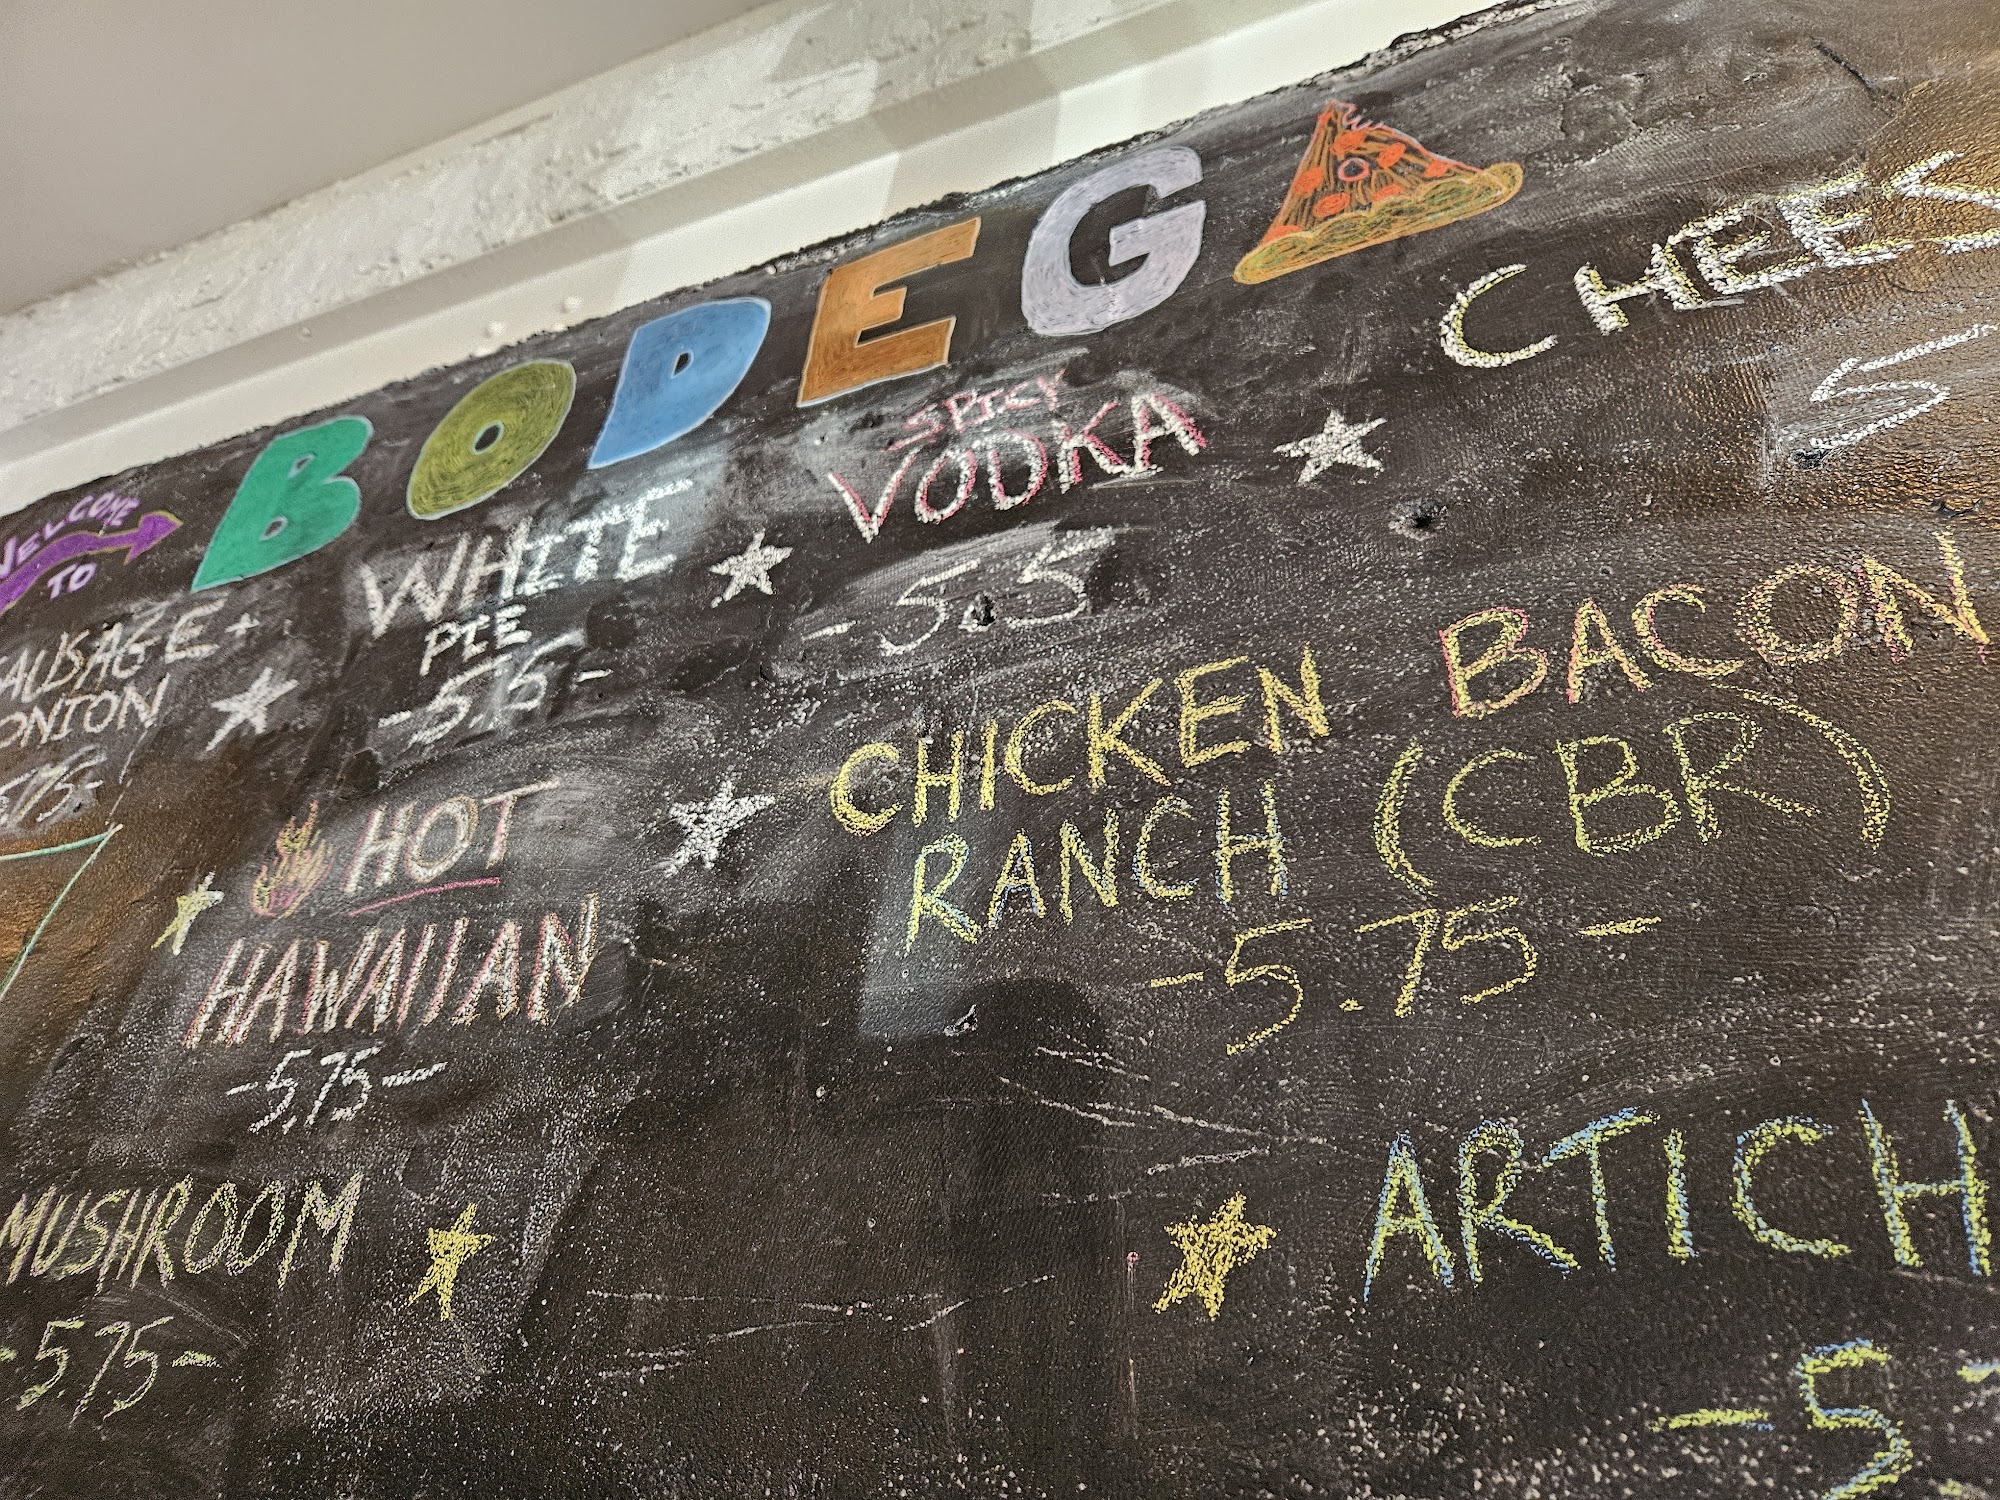 WELCOME
TO
BODEG
CHEES
5
SAUSAGE +
ONION
5.75-
WHITE
PIE
-5.5-
SPICY
VODKA
-5.5
HOT
HAWAIIAN
-5.75-
CHICKEN BACON
RANCH (CBR)
-5.75-
MUSHROOM
-5.75-
ARTICH
-5.